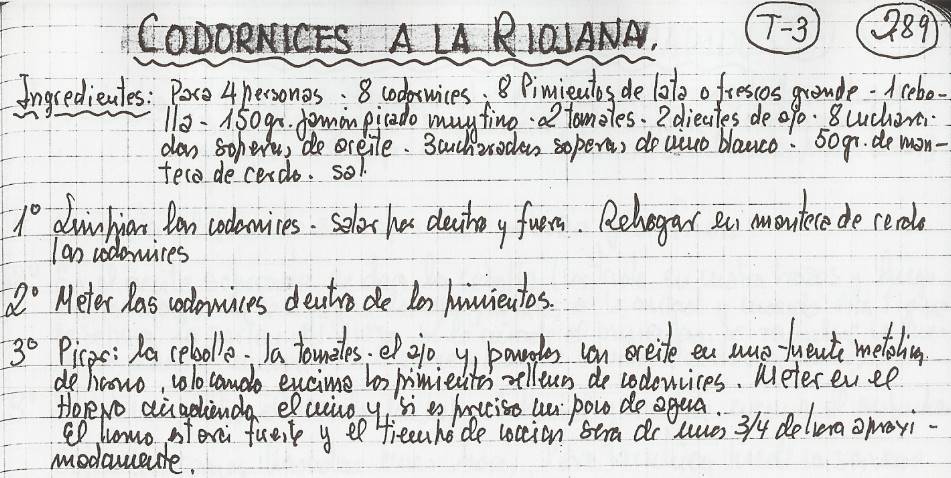 CODORNICES A LA RIOJANA. T-3 289
Ingredientes: Para 4 personas - 8 codornices - 8 Pimientos de lata o frescos grande - 1 cebo-
lla - 150 gr. jamón picado muy fino - 2 tomates - 2 dientes de ajo - 8 cuchara-
das soperas de aceite - 3 cucharadas soperas de vino blanco - 50 gr. de man-
teca de cerdo - sal.
1º Limpiar las codornices - salar por dentro y fuera. Rehogar en manteca de cerdo
las codornices
2º Meter las codornices dentro de los pimientos.
3º Picar: la cebolla - la tomates - el ajo y ponerlos con aceite en una fuente metálica
de horno, colocando encima los pimientos rellenos de codornices. Meter en el
HORNO añadiendo el vino y, si es preciso un poco de agua.
El horno estará fuerte y el tiempo de cocción sera de unos 3/4 de hora aproxi-
madamente.